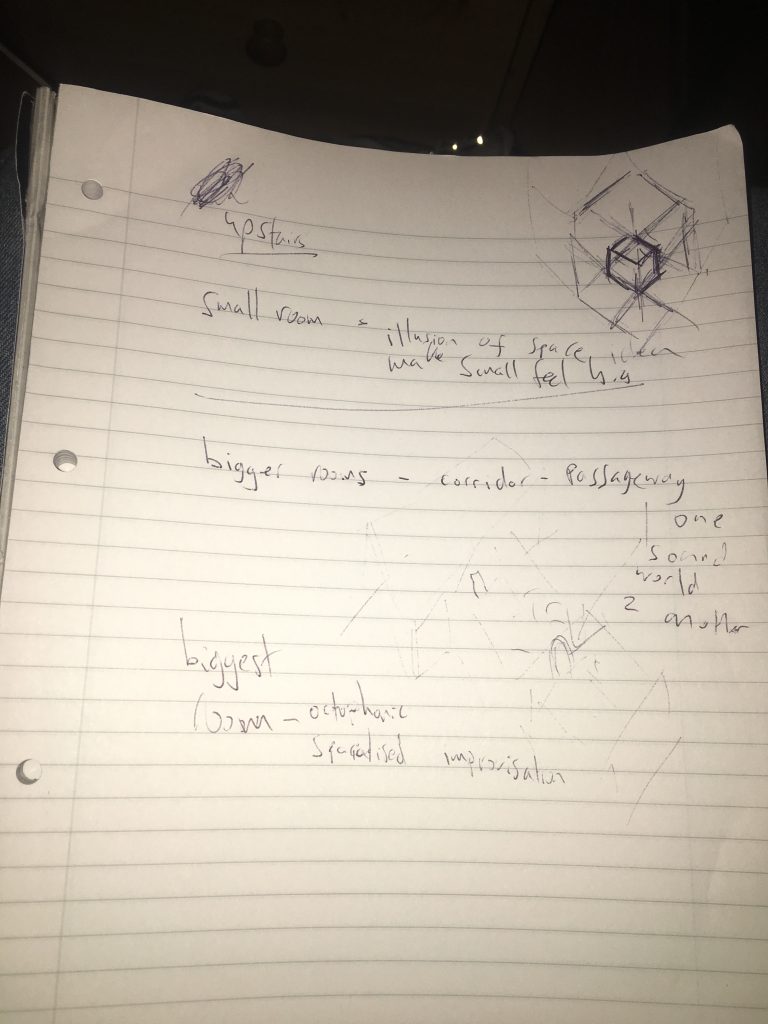 upstairs
small room - illusion of space idea
make small feel big
bigger rooms - corridor - passageway
1 one
sound
world
2 another
biggest
room - octophonic
spatialised improvisation